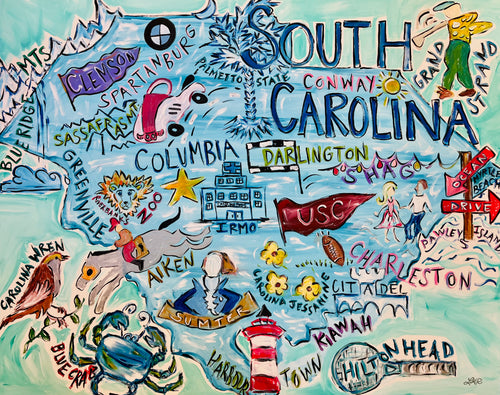 SOUTH
CAROLINA
PALMETTO STATE
BLUE RIDGE MTS
CLEMSON
SPARTANBURG
SASSAFRAS MT
GREENVILLE
CONWAY
GRAND
STRAND
COLUMBIA
DARLINGTON
SHAG
OCEAN
DRIVE
MYRTLE
BEACH
PAWLEYS ISLAND
ZOO
IRMO
USC
CHARLESTON
AIKEN
CAROLINA WREN
SUMTER
CAROLINA JESSAMINE
CITADEL
KIAWAH
BLUE CRAB
HARBOUR
TOWN
HILTON HEAD